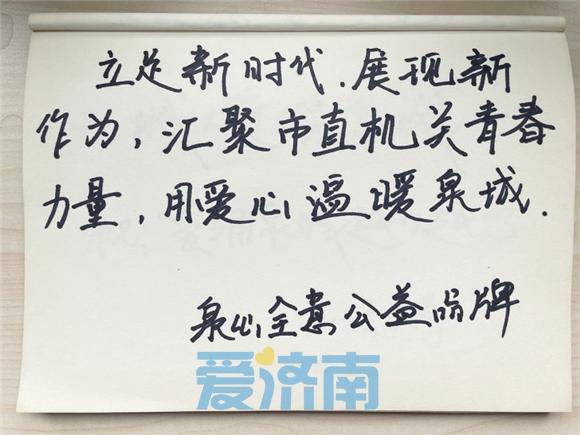 立足新时代.展现新
作为,汇聚市直机关青春
力量,用爱心温暖泉城.
泉心全意公益品牌
爱济南